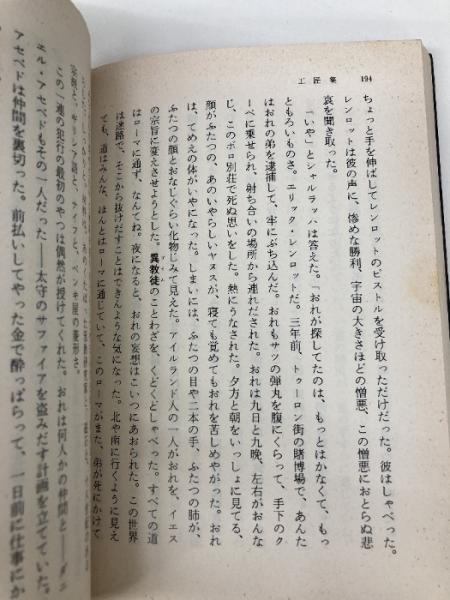 工匠集 194
ちょっと手を伸ばしてレンロットのピストルを受け取っただけだった。彼はしゃべった。
レンロットは彼の声に、惨めな勝利、宇宙の大きさほどの憎悪、この憎悪におとらぬ悲
哀を聞き取った。
「いや」とシャルラッハは答えた。「おれが探してたのは、もっとはかなくて、もっ
ともろいものさ。エリック・レンロットだ。三年前、トゥーロン街の賭博場で、あんた
はおれの弟を逮捕して、牢にぶち込んだ。おれもサツの弾丸を腹にくらって、手下のク
ーペに乗せられ、射ち合いの場所から連れだされた。おれは九日と九晩、左右がおんな
じ、このボロ別荘で死ぬ思いをした。熱にうなされた。夕方と朝をいっしょに見てる、
顔がふたつの、あのいやらしいヤヌスが、寝ても覚めてもおれを苦しめやがった。おれ
は、てめえの体がいやになった。しまいには、ふたつの目や二本の手、ふたつの肺が、
ふたつの顔とおなじぐらい化物じみて見えた。アイルランド人の一人がおれを、イエス
の宗旨に変えさせようとした。異教徒のことわざを、くどくどしゃべった。すべての道
はローマに通ず、なんてね。夜になると、おれの妄想はこいつにあおられた。この世界
は迷路で、そこから抜けだすことはできんような気になった。北や南に行くように見え
ても、道はみんな、ほんとはローマに通じていて、このローマがまた、弟が死にかけて
ペンキ屋の菱形さ。
この一連の犯行の最初のやつは偶然が授けてくれた。おれは何人かの仲間と——ダニ
エル・アセベドもその一人だった——太守のサファイアを盗みだす計画を立てていた。
アセベドは仲間を裏切った。前払いしてやった金で酔っぱらって、一日前に仕事にか